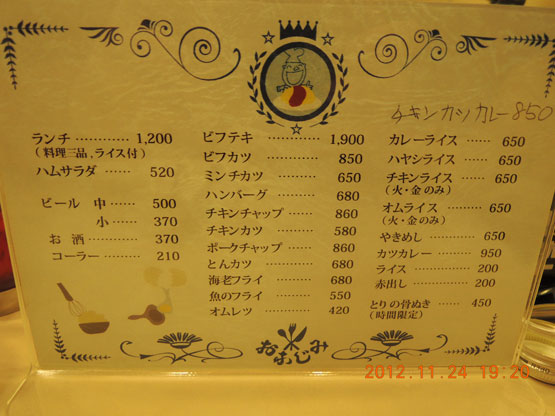 チキンカツカレー850
ランチ ………… 1,200
(料理三品、ライス付)
ハムサラダ …… 520
ビール 中 …… 500
小 …… 370
お酒 ………… 370
コーラー ……… 210
ビフテキ ……… 1,900
ビフカツ ……… 850
ミンチカツ …… 650
ハンバーグ …… 680
チキンチャップ …… 860
チキンカツ …… 580
ポークチャップ …… 860
とんカツ ……… 680
海老フライ …… 680
魚のフライ …… 550
オムレツ ……… 420
カレーライス …… 650
ハヤシライス …… 650
チキンライス …… 650
(火・金のみ)
オムライス …… 650
(火・金のみ)
やきめし ……… 650
カツカレー …… 950
ライス ………… 200
赤出し ………… 200
とりの骨ぬき … 450
(時間限定)
おむじみ
2012.11.24 19:20